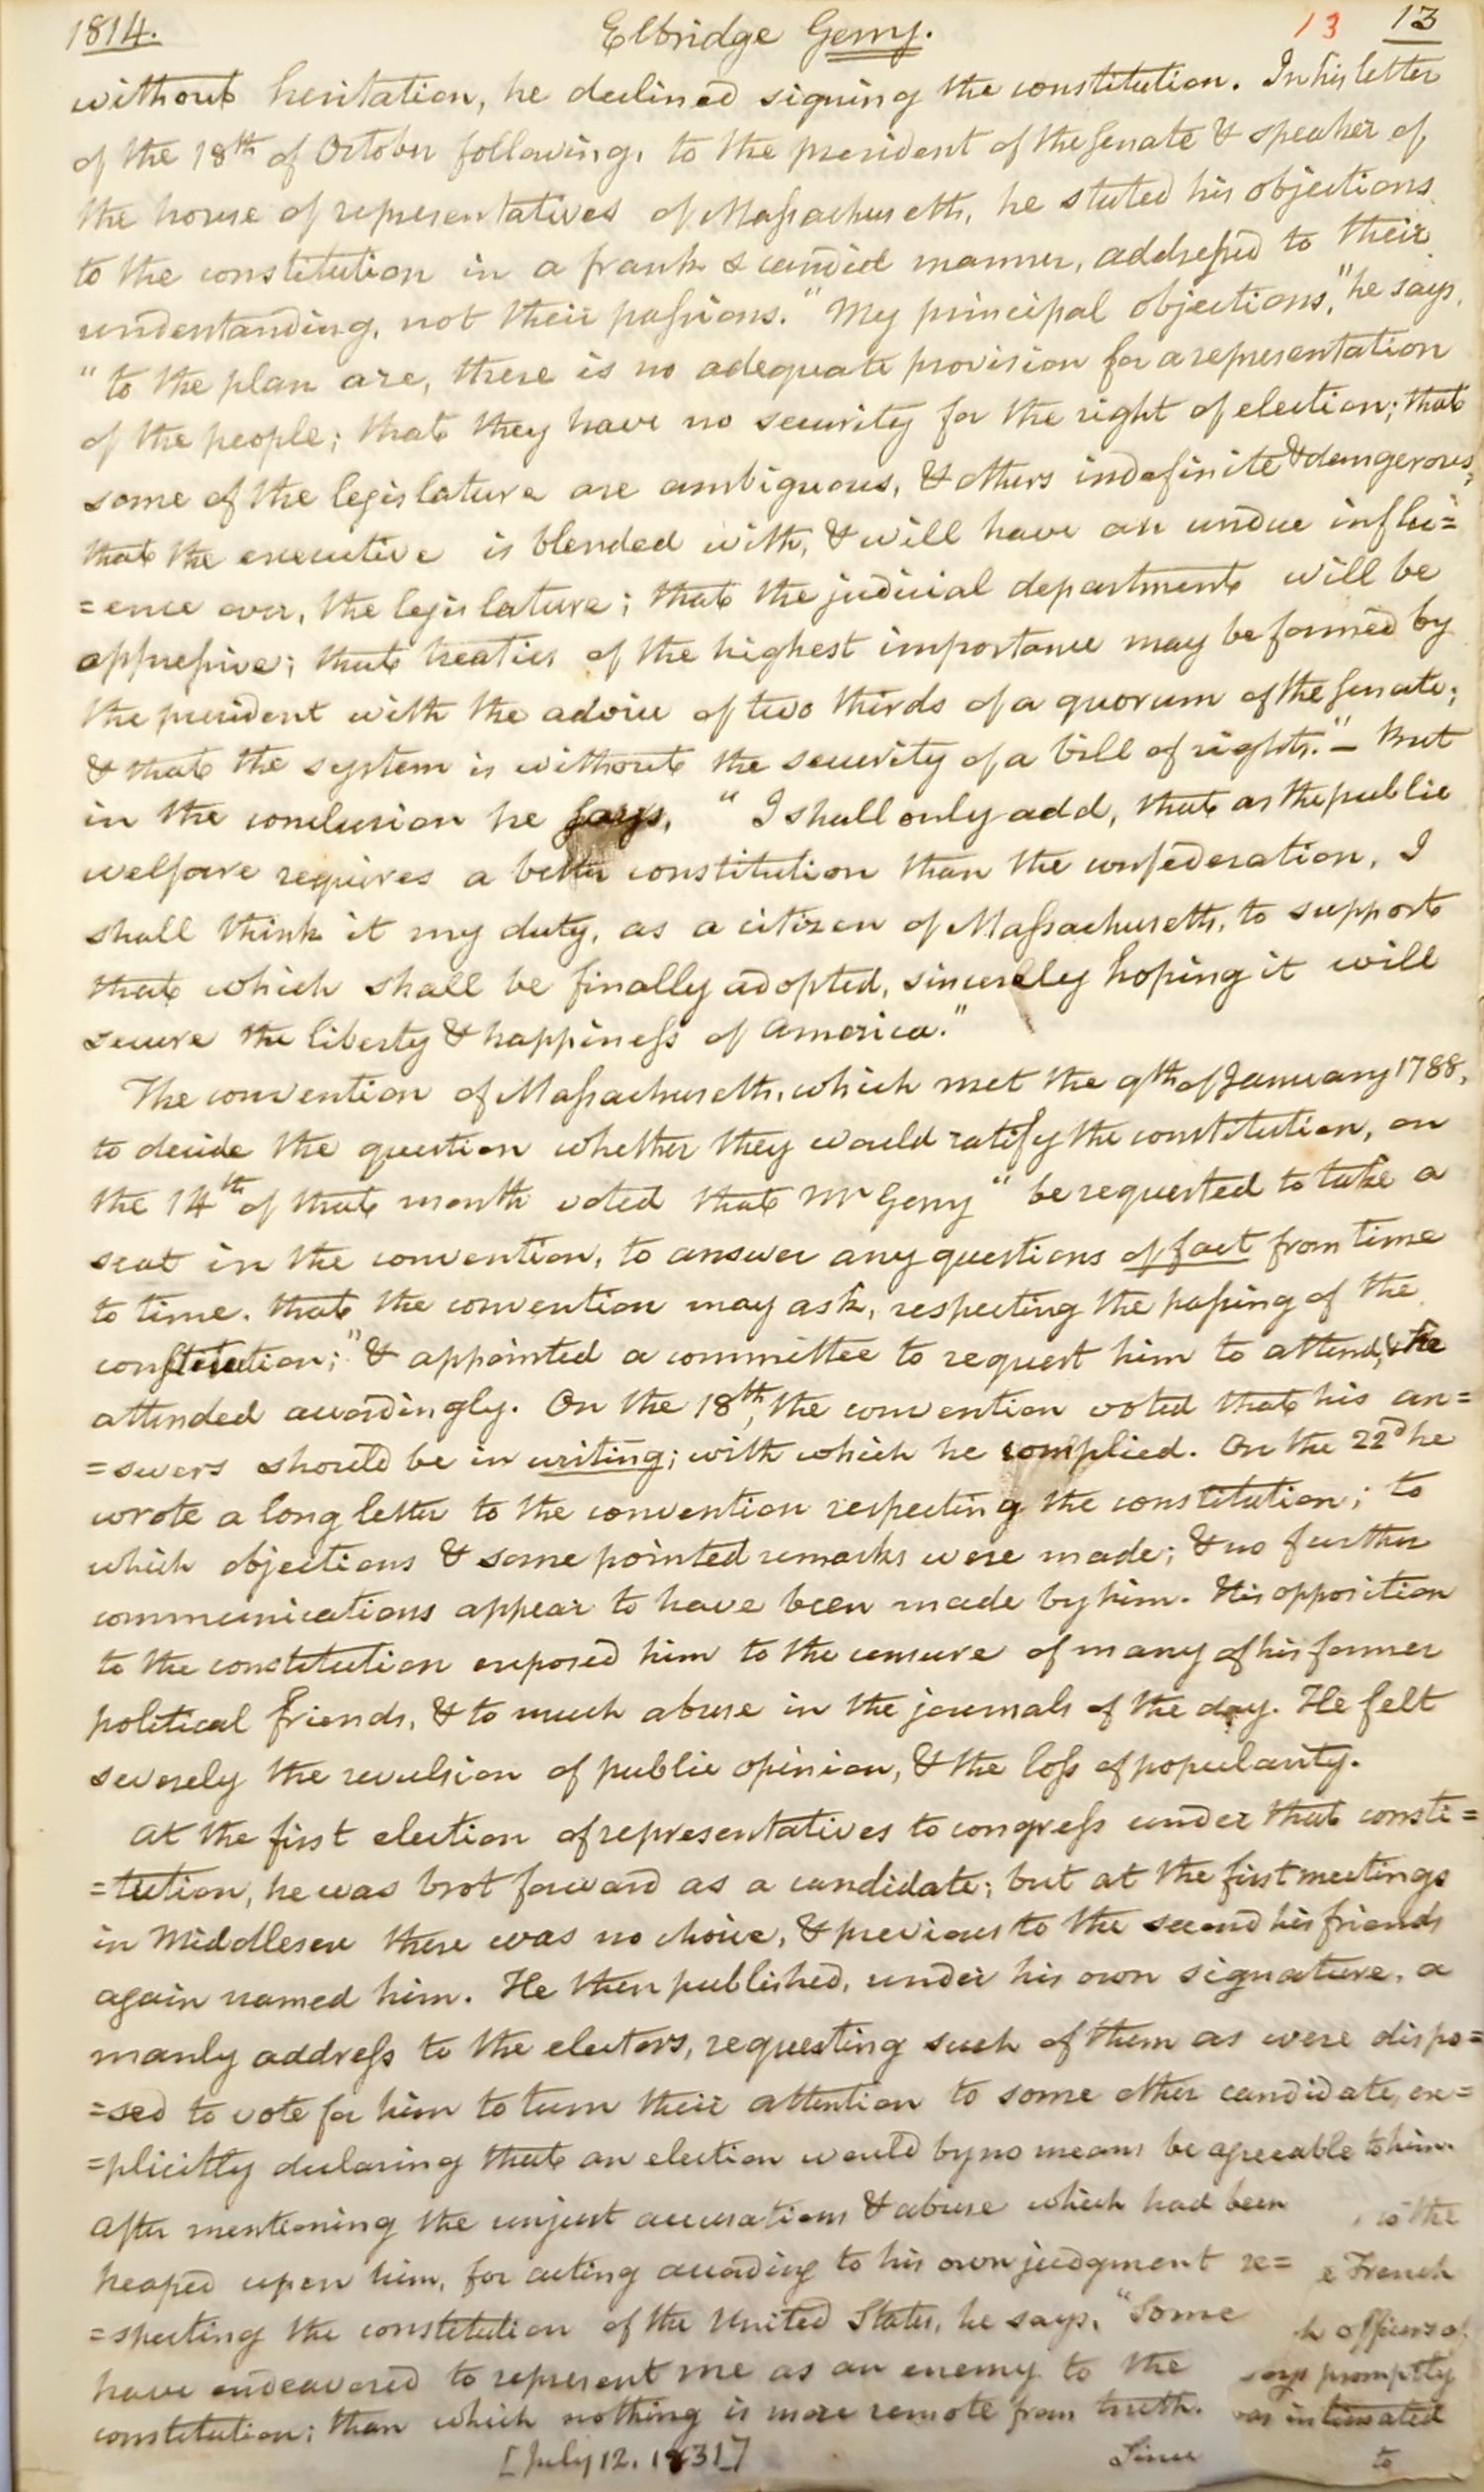 1814. Elbridge Gerry. 13 13
without hesitation, he declined signing the constitution. In his letter
of the 18th of October following, to the president of the Senate & speaker of
the house of representatives of Massachusetts, he stated his objections
to the constitution in a frank & candid manner, addressed to their
understanding, not their passions. "My principal objections," he says,
"to the plan are, there is no adequate provision for a representation
of the people; that they have no security for the right of election; that
some of the legislature are ambiguous, & others indefinite & dangerous;
that the executive is blended with, & will have an undue influ=
=ence over, the legislature; that the judicial department will be
oppressive; that treaties of the highest importance may be formed by
the president with the advice of two thirds of a quorum of the Senate;
& that the system is without the security of a bill of rights."– But
in the conclusion he says, "I shall only add, that as the public
welfare requires a better constitution than the confederation, I
shall think it my duty, as a citizen of Massachusetts, to support
that which shall be finally adopted, sincerely hoping it will
secure the liberty & happiness of America."
The convention of Massachusetts, which met the 9th of January 1788,
to decide the question whether they would ratify the constitution, on
the 14th of that month voted that Mr Gerry "be requested to take a
seat in the convention, to answer any questions of fact from time
to time, that the convention may ask, respecting the passing of the
constitution;" & appointed a committee to request him to attend, & he
attended accordingly. On the 18th, the convention voted that his an=
=swers should be in writing; with which he complied. On the 22d he
wrote a long letter to the convention respecting the constitution; to
which objections & some pointed remarks were made; & no further
communications appear to have been made by him. His opposition
to the constitution exposed him to the censure of many of his former
political friends, & to much abuse in the journals of the day. He felt
severely the revulsion of public opinion, & the loss of popularity.
At the first election of representatives to congress under that consti=
=tution, he was brot forward as a candidate; but at the first meetings
in Middlesex there was no choice, & previous to the second his friends
again named him. He then published, under his own signature, a
manly address to the electors, requesting such of them as were dispo=
=sed to vote for him to turn their attention to some other candidate, ex=
=plicitly declaring that an election would by no means be agreeable to him.
After mentioning the unjust accusations & abuse which had been
heaped upon him, for acting according to his own judgment re=
=specting the constitution of the United States, he says, "Some
have endeavored to represent me as an enemy to the
constitution; than which nothing is more remote from truth.
[July 12. 1831] Since
to the
French
officers of
says promptly
was intimated
to